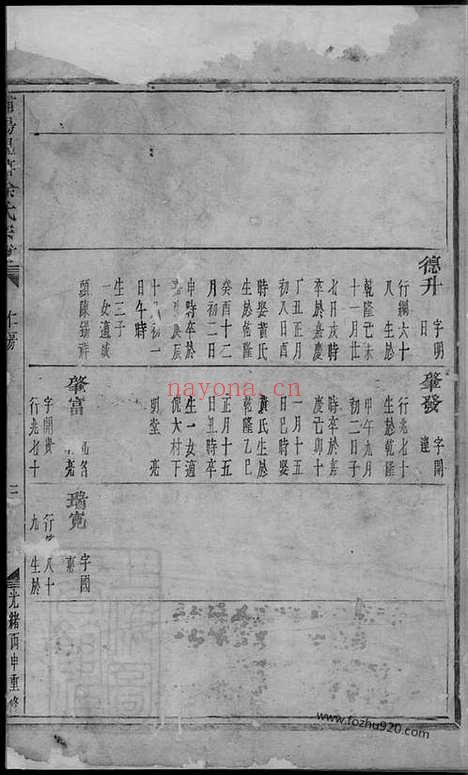 德升
字明日
行綱六十
八生於
乾隆己未
十一月廿
七日戌時
卒於嘉慶
丁丑正月
初八日酉
時娶黃氏
生於乾隆
癸酉十二
月初二日
申時卒於
庚辰
十月初一
日午時
生三子
一女適城
頭陳錫祥
肇發
字開運
行兆七十
生於乾隆
甲午九月
初二日子
時卒於嘉
慶己卯十
一月十五
日巳時娶
黃氏生於
乾隆乙巳
正月十五
日丑時卒
生一女適
倪大村下
明堂
肇富
字開貴
行兆七十
瑞寬
字國
八十
九生於
三
光緒丙申重修
nayona.cn
www.fozhu920.com